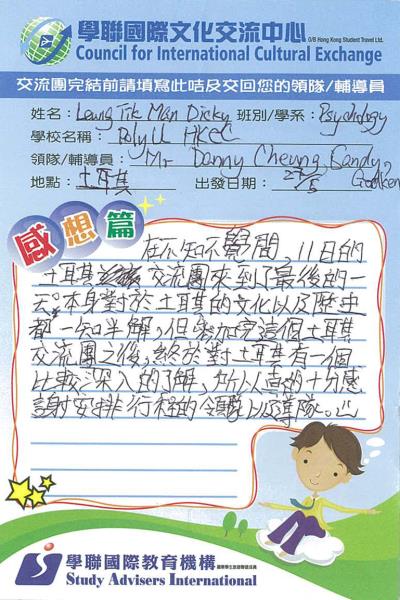 學聯國際文化交流中心 O/B Hong Kong Student Travel Ltd.
Council for International Cultural Exchange
交流團完結前請填寫此咭及交回您的領隊/輔導員
姓名: Leung Tik Man Dicky 班別/學系: Psychology
學校名稱: PolyU HKCC
領隊/輔導員: Mr Danny Cheung, Sandy
地點: 土耳其 出發日期: 27/5
感想篇
在不知不覺間,11日的
土耳其交流團來到了最後的一
天。本身對於土耳其的文化以及歷史
都一知半解,但參加完這個土耳其
交流團之後,終於對土耳其有一個
比較深入的了解,所以真的十分感
謝安排行程的領隊以及導隊。
學聯國際教育機構
Study Advisers International